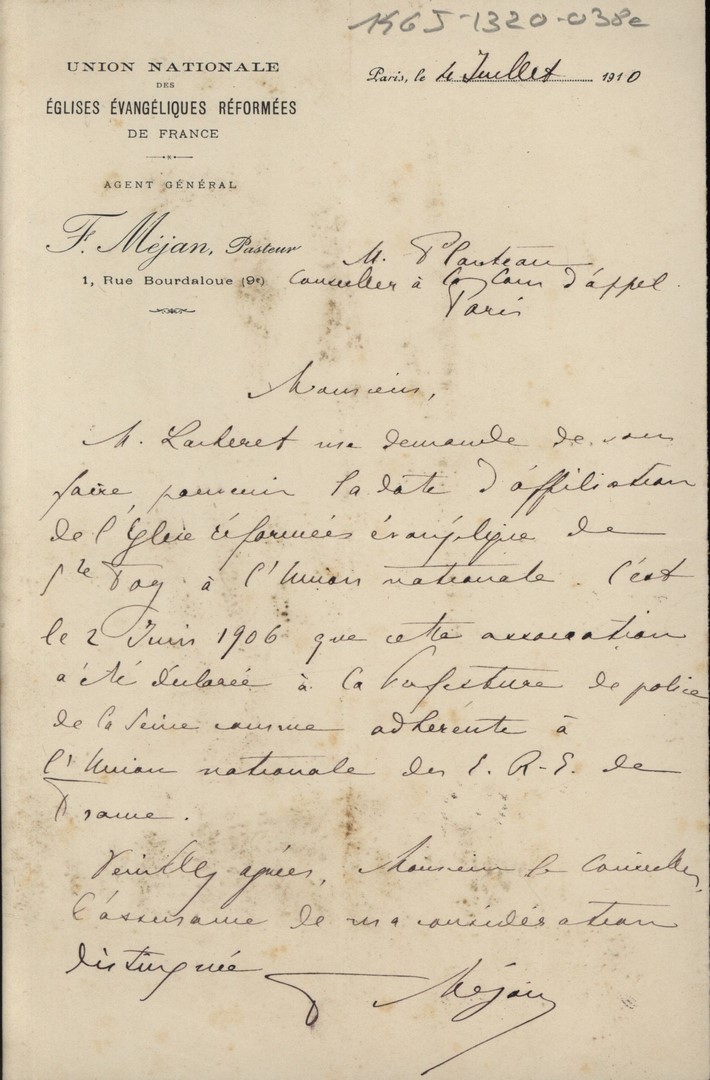 1465-1320-038c
UNION NATIONALE
DES
ÉGLISES ÉVANGÉLIQUES RÉFORMÉES
DE FRANCE
AGENT GÉNÉRAL
F. Méjan, Pasteur
1, Rue Bourdaloue (9e)
Paris, le 4 Juillet 1910
M. Planteau
Conseiller à la Cour d'appel.
Paris
Monsieur,
M. me demande de vous
faire parvenir la date d'affiliation
de l'Église réformées évangélique de
Ste Foy à l'Union nationale. C'est
le 2 Juin 1906 que cette association
a été déclarée à la Préfecture de police
de la Seine comme adhérente à
l'Union nationale des E. R. E. de
France.
Veuillez agréer, Monsieur le Conseiller,
l'assurance de ma considération
distinguée
F Méjan